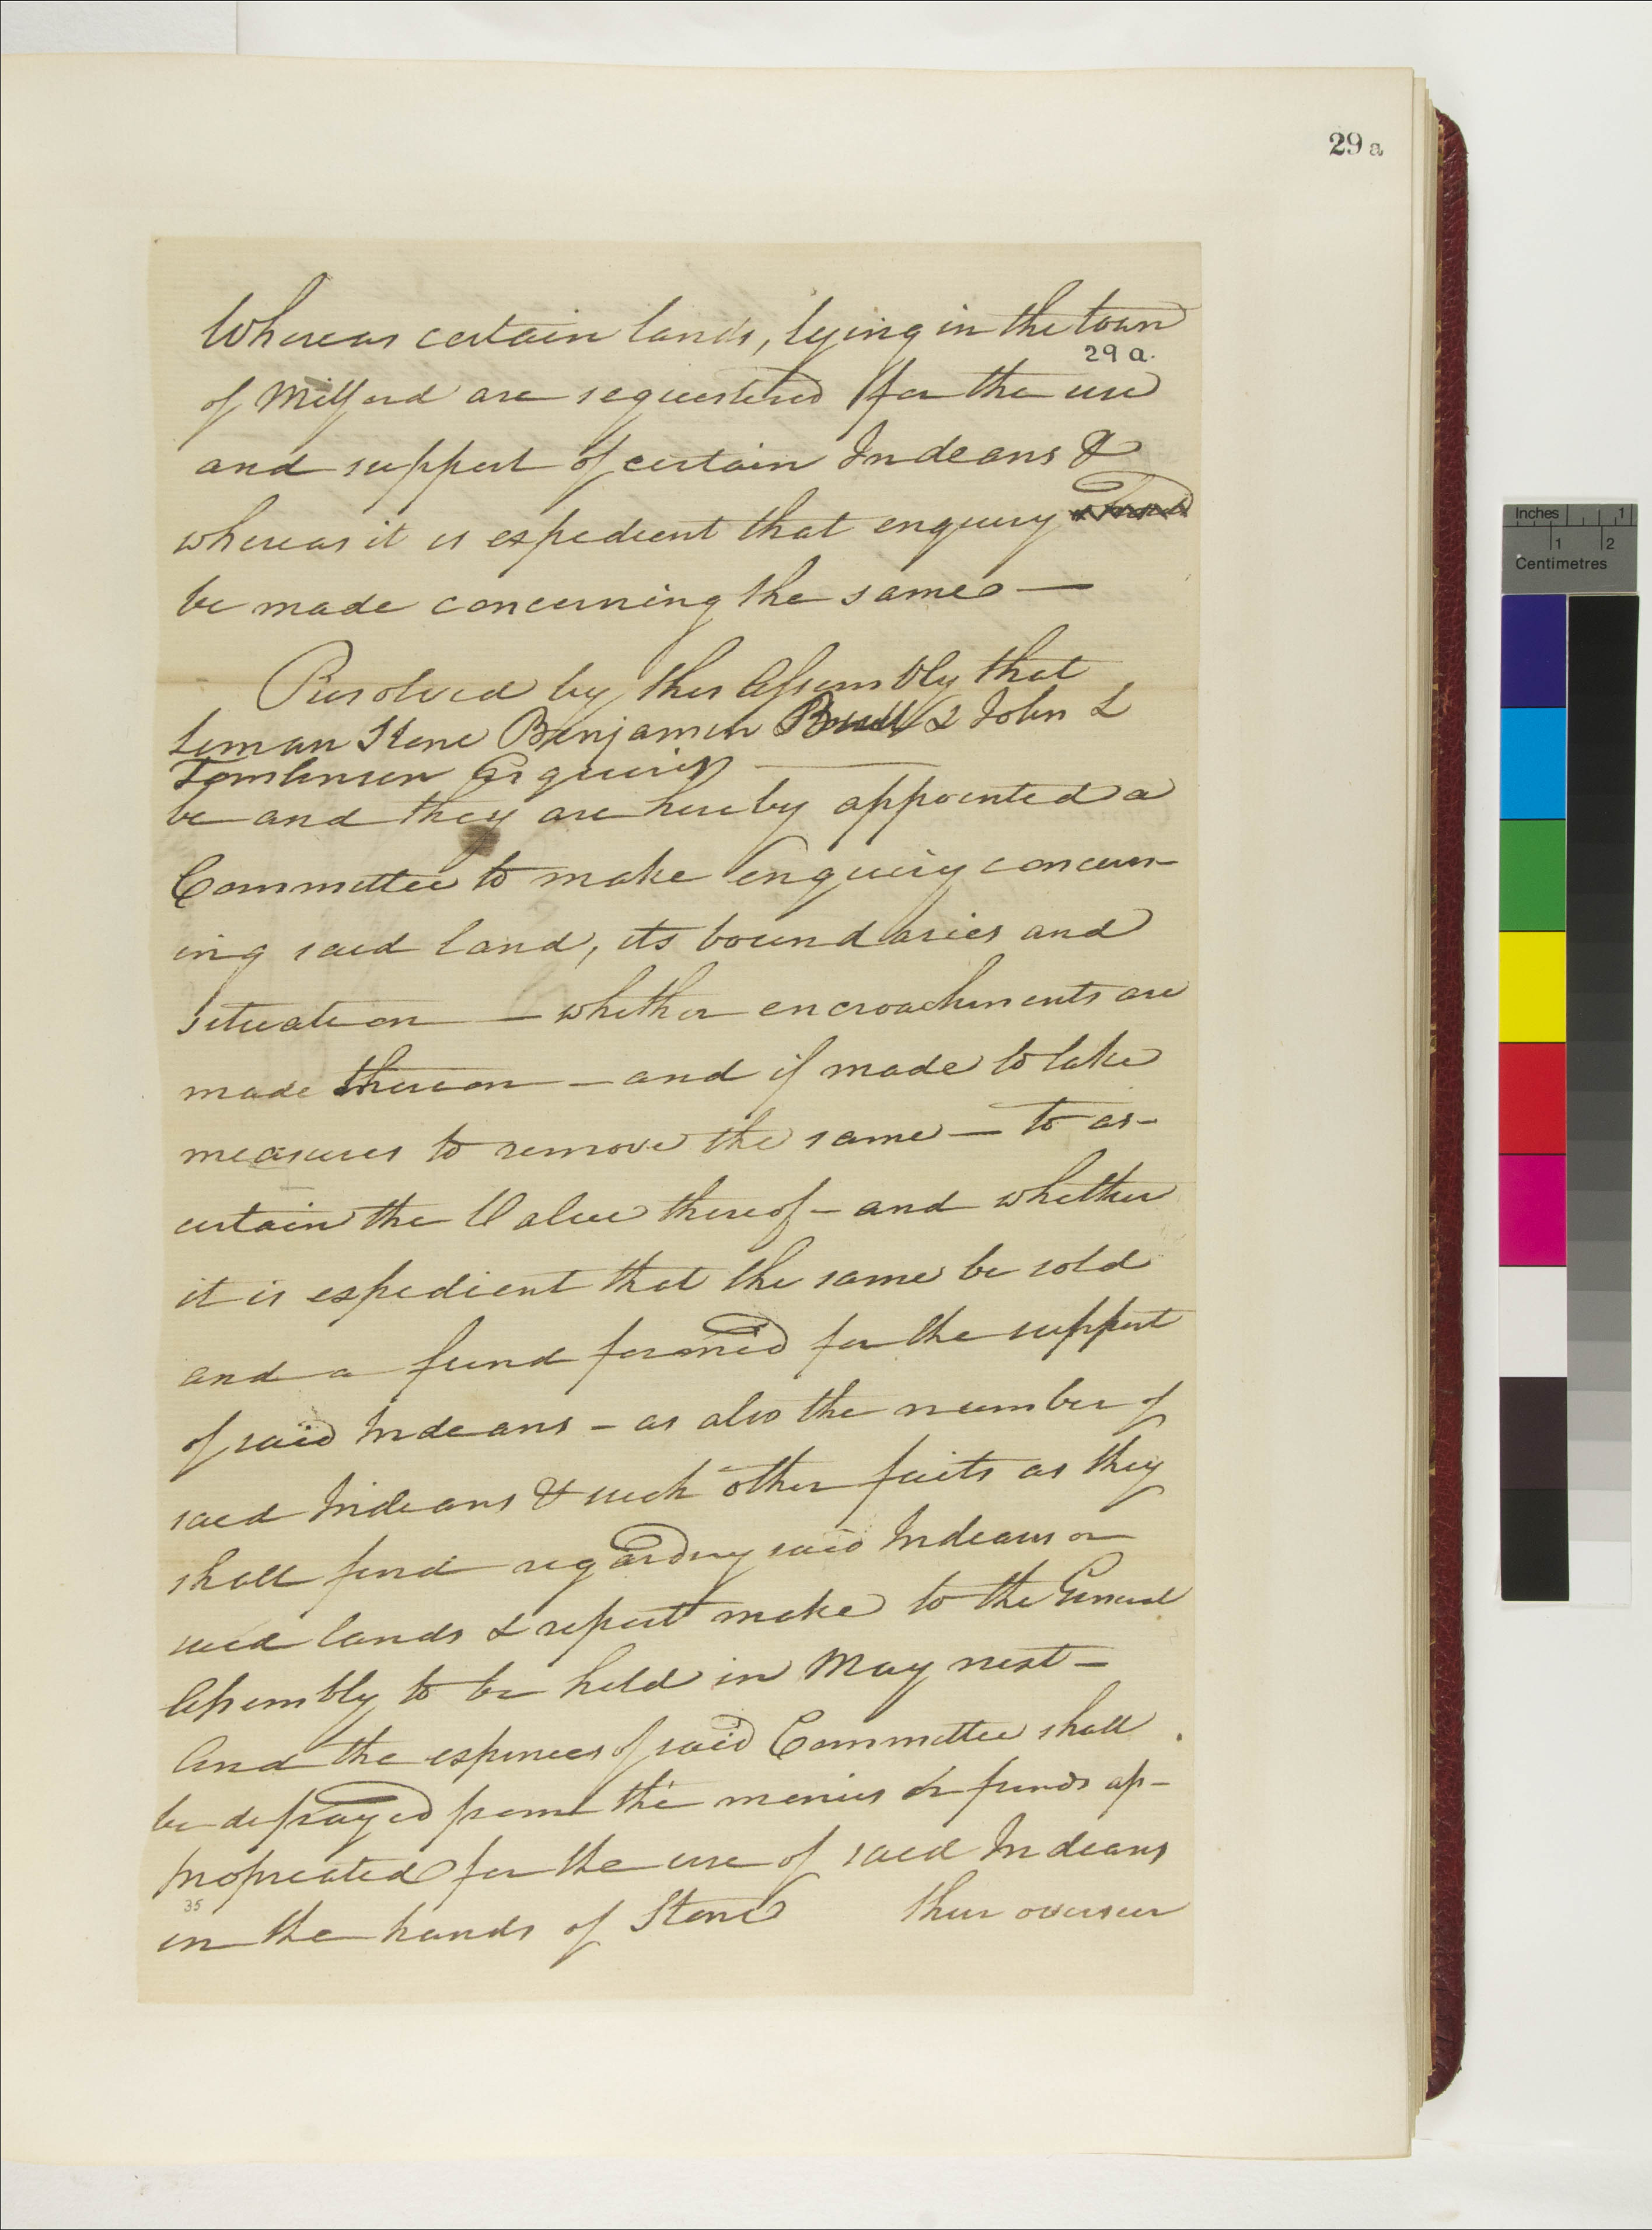 29 a
Whereas certain lands, lying in the town
29 a.
of Milford are sequestered for the use
and support of certain Indeans &
whereas it is expedient that enquiry
be made concerning the same —
Resolved by this Assembly that
Leman Stone Benjamin & John L
Tomlinson Esquires —
be and they are hereby appointed a
Committee to make enquiry concern-
ing said land, its boundaries and
situation — whether encroachments are
made thereon — and if made to take
measures to remove the same — to as-
certain the Value thereof — and whether
it is expedient that the same be sold
and a fund formed for the support
of said Indeans — as also the number of
said Indeans & such other facts as they
shall find regarding said Indeans or
said lands & report make to the General
Assembly to be held in May next —
And the expences of said Committee shall
be defrayed from the monies or funds ap-
propreated for the use of said Indeans
35
in the hands of Stone their overseer
Inches 1
1 2
Centimetres